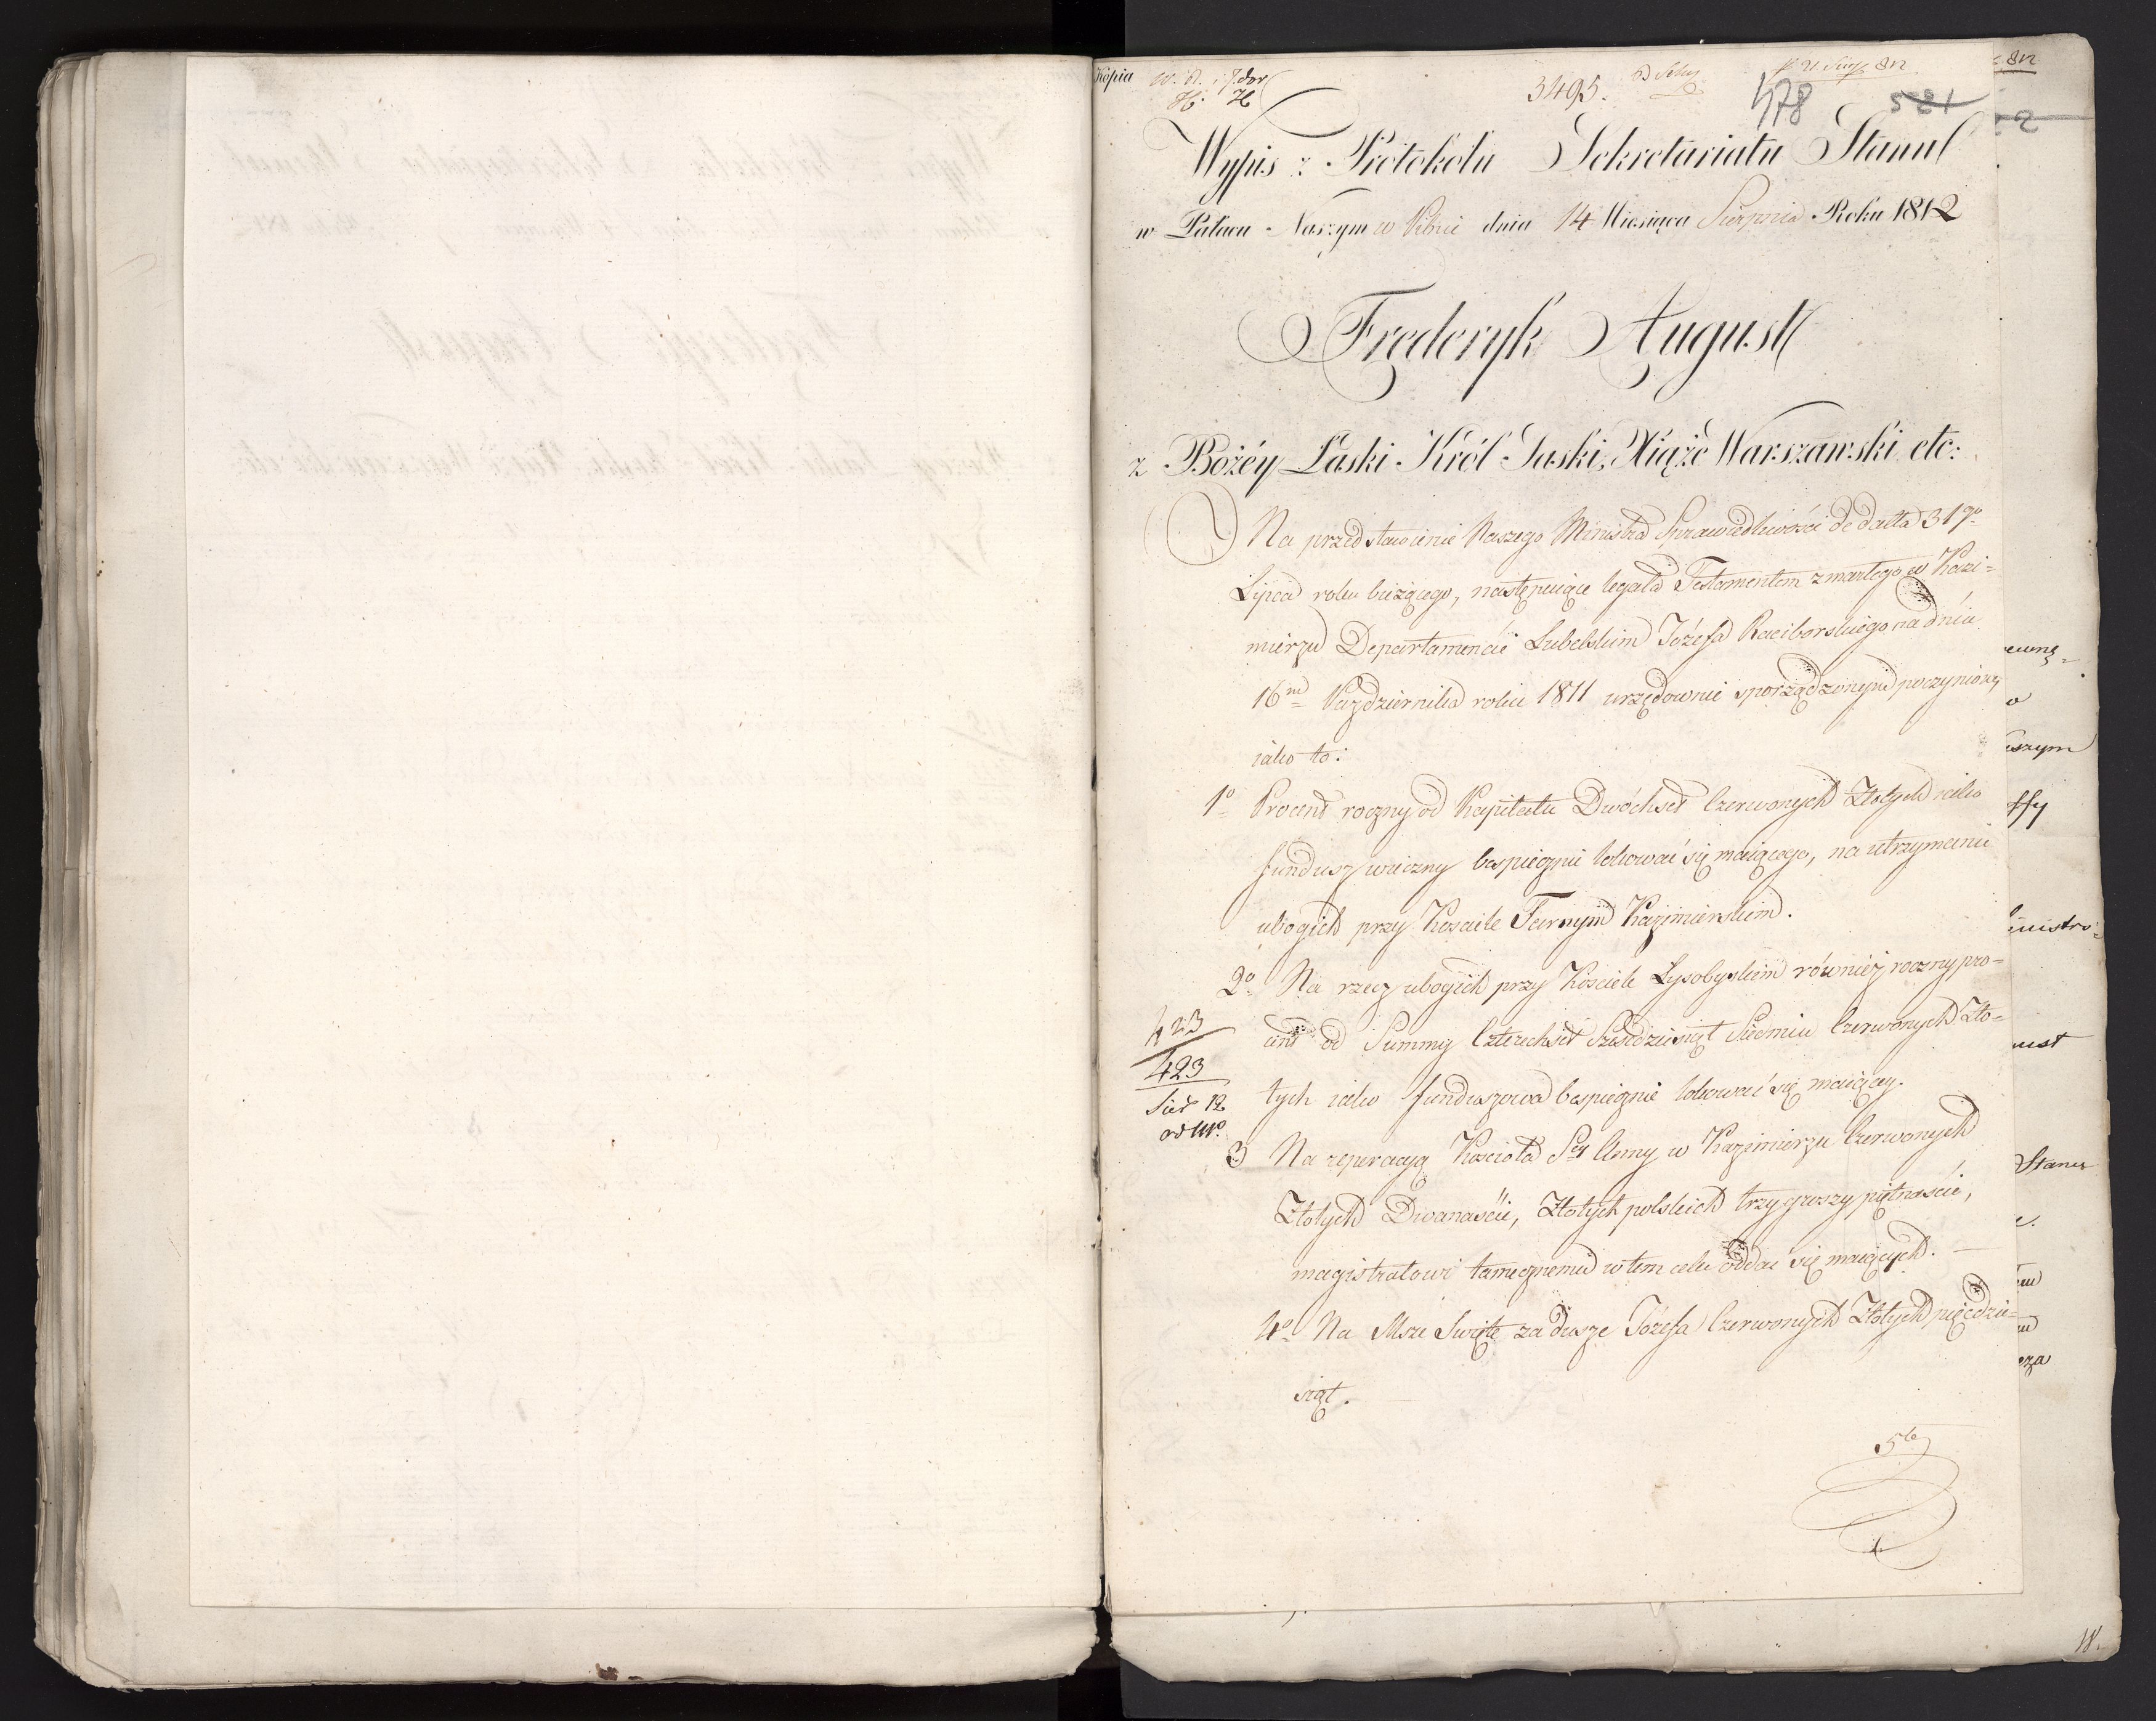 Kopia
3495.
478 521
Wypis z Protokołu Sekretariatu Stanu
w Pałacu Naszym w Pilnic dnia 14 Miesiąca Sierpnia Roku 1812
Frederyk August
z Bożéy Łaski Król Saski, Xiążę Warszawski etc:
Na przedstawienie Naszego Ministra Sprawiedliwości de datto 31go
Lipca roku bieżącego, następuiące legata Testamentem zmarłego w Kazi=
mierzu Departamencie Lubelskim Józefa Raciborskiego na dniu
16m Października roku 1811 urzędownie sporządzonym poczynione,
iako to:
1o Procent roczny od Kapitału Dwóchset Czerwonych Złotych iako
fundusz wieczny bespiecznie lokować się maiącego, na utrzymanie
ubogich przy Kosciele Farnym Kazimierskim.
2o Na rzecz ubogich przy Kościele Łysobyskim również roczny pro=
cent od Summy Czterechset Sześćdziesiąt Siedmiu Czerwonych Zło=
tych iako funduszowa bespiecznie lokować się maiącey.
423
423
Sier 12
3 Na reperacyą Kościoła Sty Anny w Kazimierzu Czerwonych
Złotych Dwanaście, Złotych polskich trzy groszy piętnaście,
magistratowi tamecznemu w tem celu oddać się maiących.
4o Na Msze Swięte za duszę Józefa Czerwonych Złotych pięćdzie=
siąt.
5to
812
2
ewnę=
o
aszym
ffy
inistro=
ust
Stanu
e.
em
eza